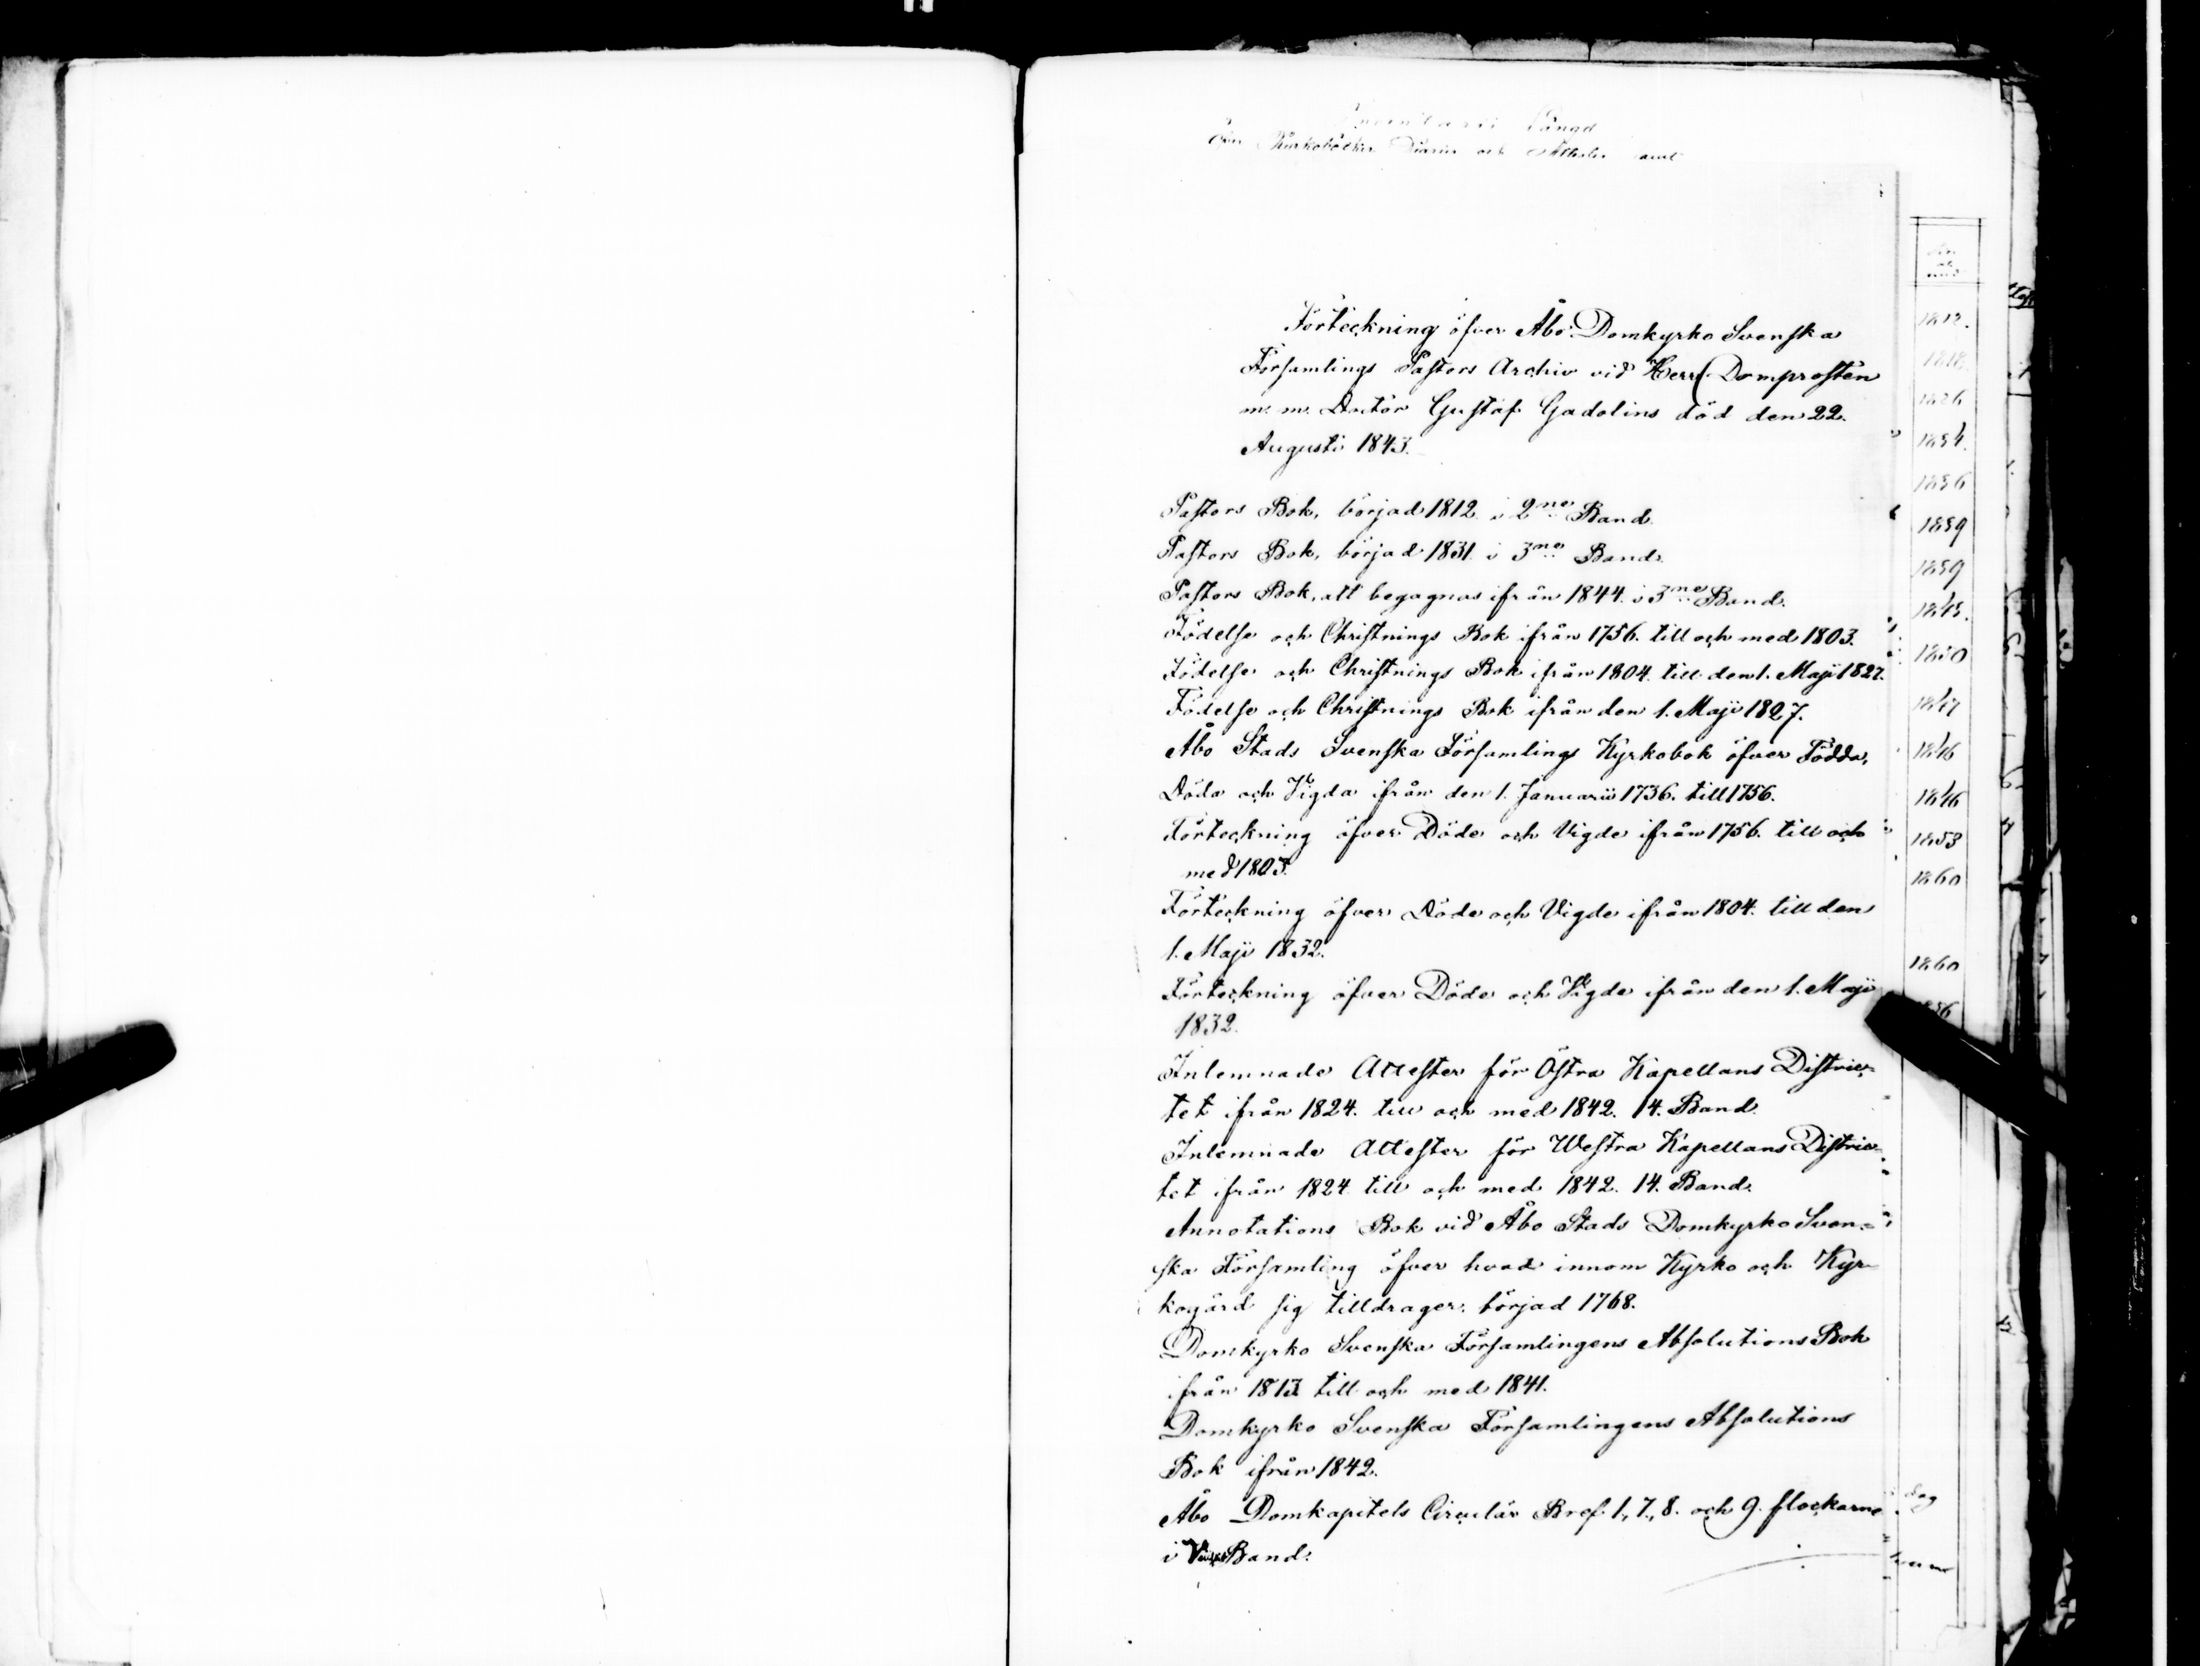 Längd
Kyrkoböcker Diarier och samt
Förteckning öfver Åbo Domkyrko Svenska
Församlings Pastors Archiv vid Herr Domprosten
m. m. Doctor Gustaf Gadolins död den 22.
Augusti 1843.
Pastors Bok, börjad 1812. i 2ne Band.
Pastors Bok, börjad 1831. i 3ne Band.
Pastors Bok, att begagnas ifrån 1844. i 3ne Band.
Födelse och Christnings Bok ifrån 1756. till och med 1803.
Födelse och Christnings Bok ifrån 1804. till den 1. Maji 1827.
Födelse och Christnings Bok ifrån den 1. Maji 1827.
Åbo Stads Svenska Församlings Kyrkobok öfver Födda,
Döda och Vigda ifrån den 1. Januarii 1736. till 1756.
Förteckning öfver Döde och Vigde ifrån 1756. till och
med 1803.
Förteckning öfver Döde och Vigde ifrån 1804. till den
1. Maji 1832.
Förteckning öfver Döde och Vigde ifrån den 1. Maji
1832.
Inlemnade Attester för Östra Kapellans Distric-
tet ifrån 1824. till och med 1842. 14. Band.
Inlemnade Attester för Westra Kapellans Distric-
tet ifrån 1824 till och med 1842. 14. Band.
Annotations Bok vid Åbo Stads Domkyrko Sven-
ska Församling öfver hvad innom Kyrko och Kyr-
kogård sig tilldrager, börjad 1768.
Domkyrko Svenska Församlingens Absolutions Bok
ifrån 1813 till och med 1841.
Domkyrko Svenska Församlingens Absolutions
Bok ifrån 1842.
Åbo Domkapitels Circulär Bref 1., 7., 8. och 9. flockarne
i Band.
1812.
1818.
1826
1834.
1836
1839
1839
1843.
1850
1847
1846
1846
1853
1860
1860